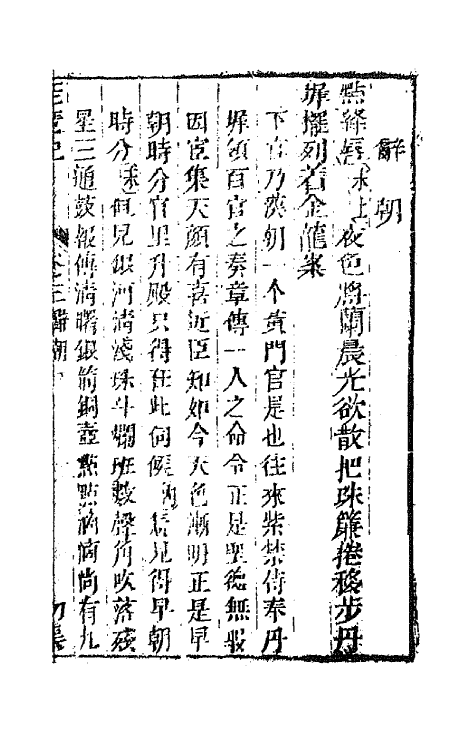 辭朝
點絳唇末上夜色將闌晨光欲散把珠簾捲移步丹
墀擺列着金龍案
下官乃漢朝一个黃門官是也往來紫禁侍奉丹
墀領百官之奏章傳一人之命令正是聖德無瑕
因宦集天顏有喜近臣知如今天色漸明正是早
朝時分官里升殿只得在此伺候内怎見得早朝
時分末但見銀河清淺珠斗斕班數聲角吹落殘
星三通鼓報傳清曙銀箭銅壺點點滴滴尚有九
卷三辭朝